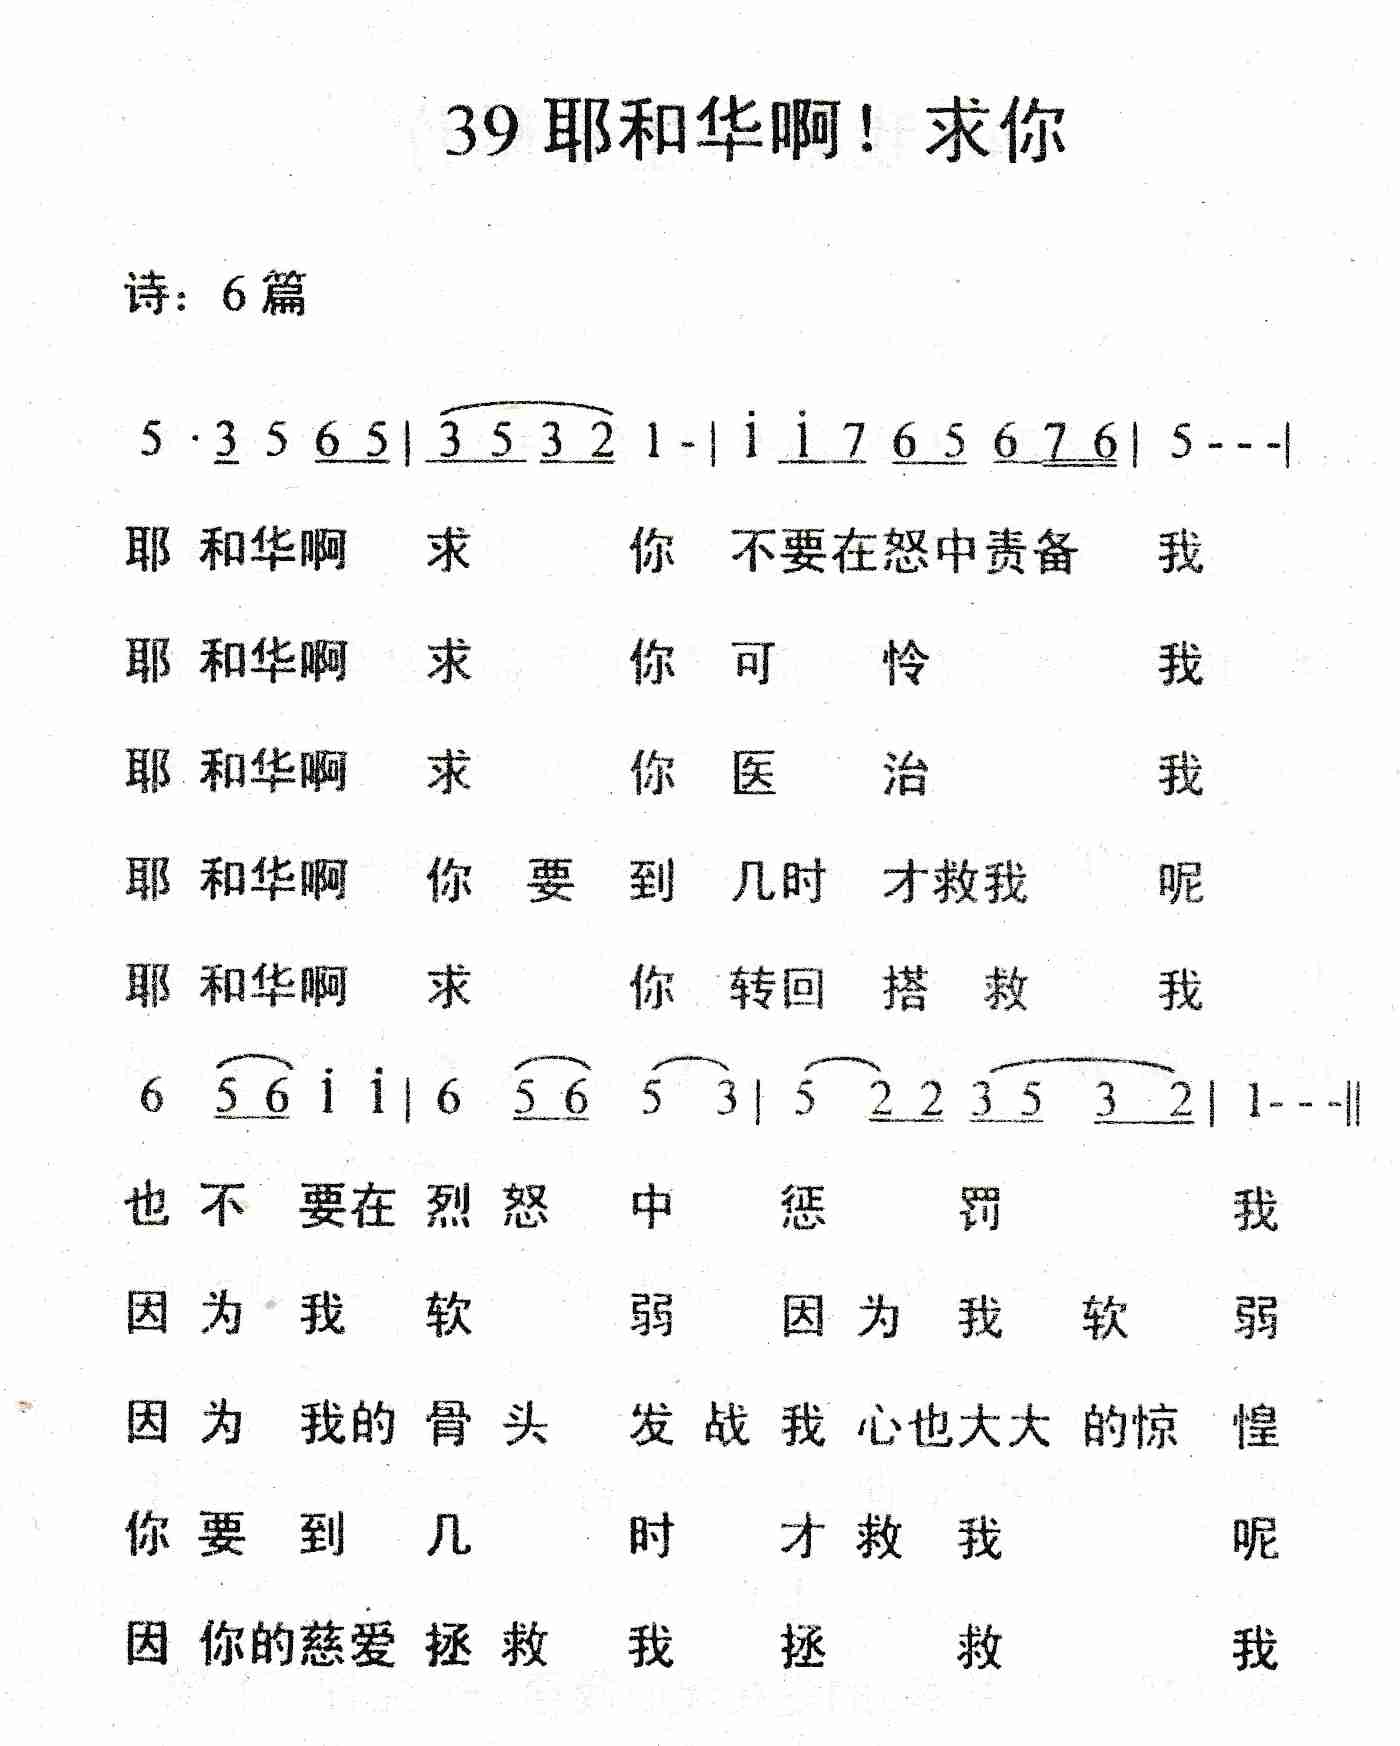 39 耶和华啊！求你
诗：6 篇
5 · 3 5 6 5 | 3 5 3 2 1 - | i i 7 6 5 6 7 6 | 5 - - - |
耶 和华啊 求 你 不要在怒中责备 我
耶 和华啊 求 你 可 怜 我
耶 和华啊 求 你 医 治 我
耶 和华啊 你 要 到 几时 才救我 呢
耶 和华啊 求 你 转回 搭 救 我
6 5 6 i i | 6 5 6 5 3 | 5 2 2 3 5 3 2 | 1 - - - ||
也 不 要在 烈 怒 中 惩 罚 我
因 为 我 软 弱 因 为 我 软 弱
因 为 我的 骨 头 发 战 我 心也大大 的惊 惶
你 要 到 几 时 才 救 我 呢
因 你的慈爱 拯 救 我 拯 救 我